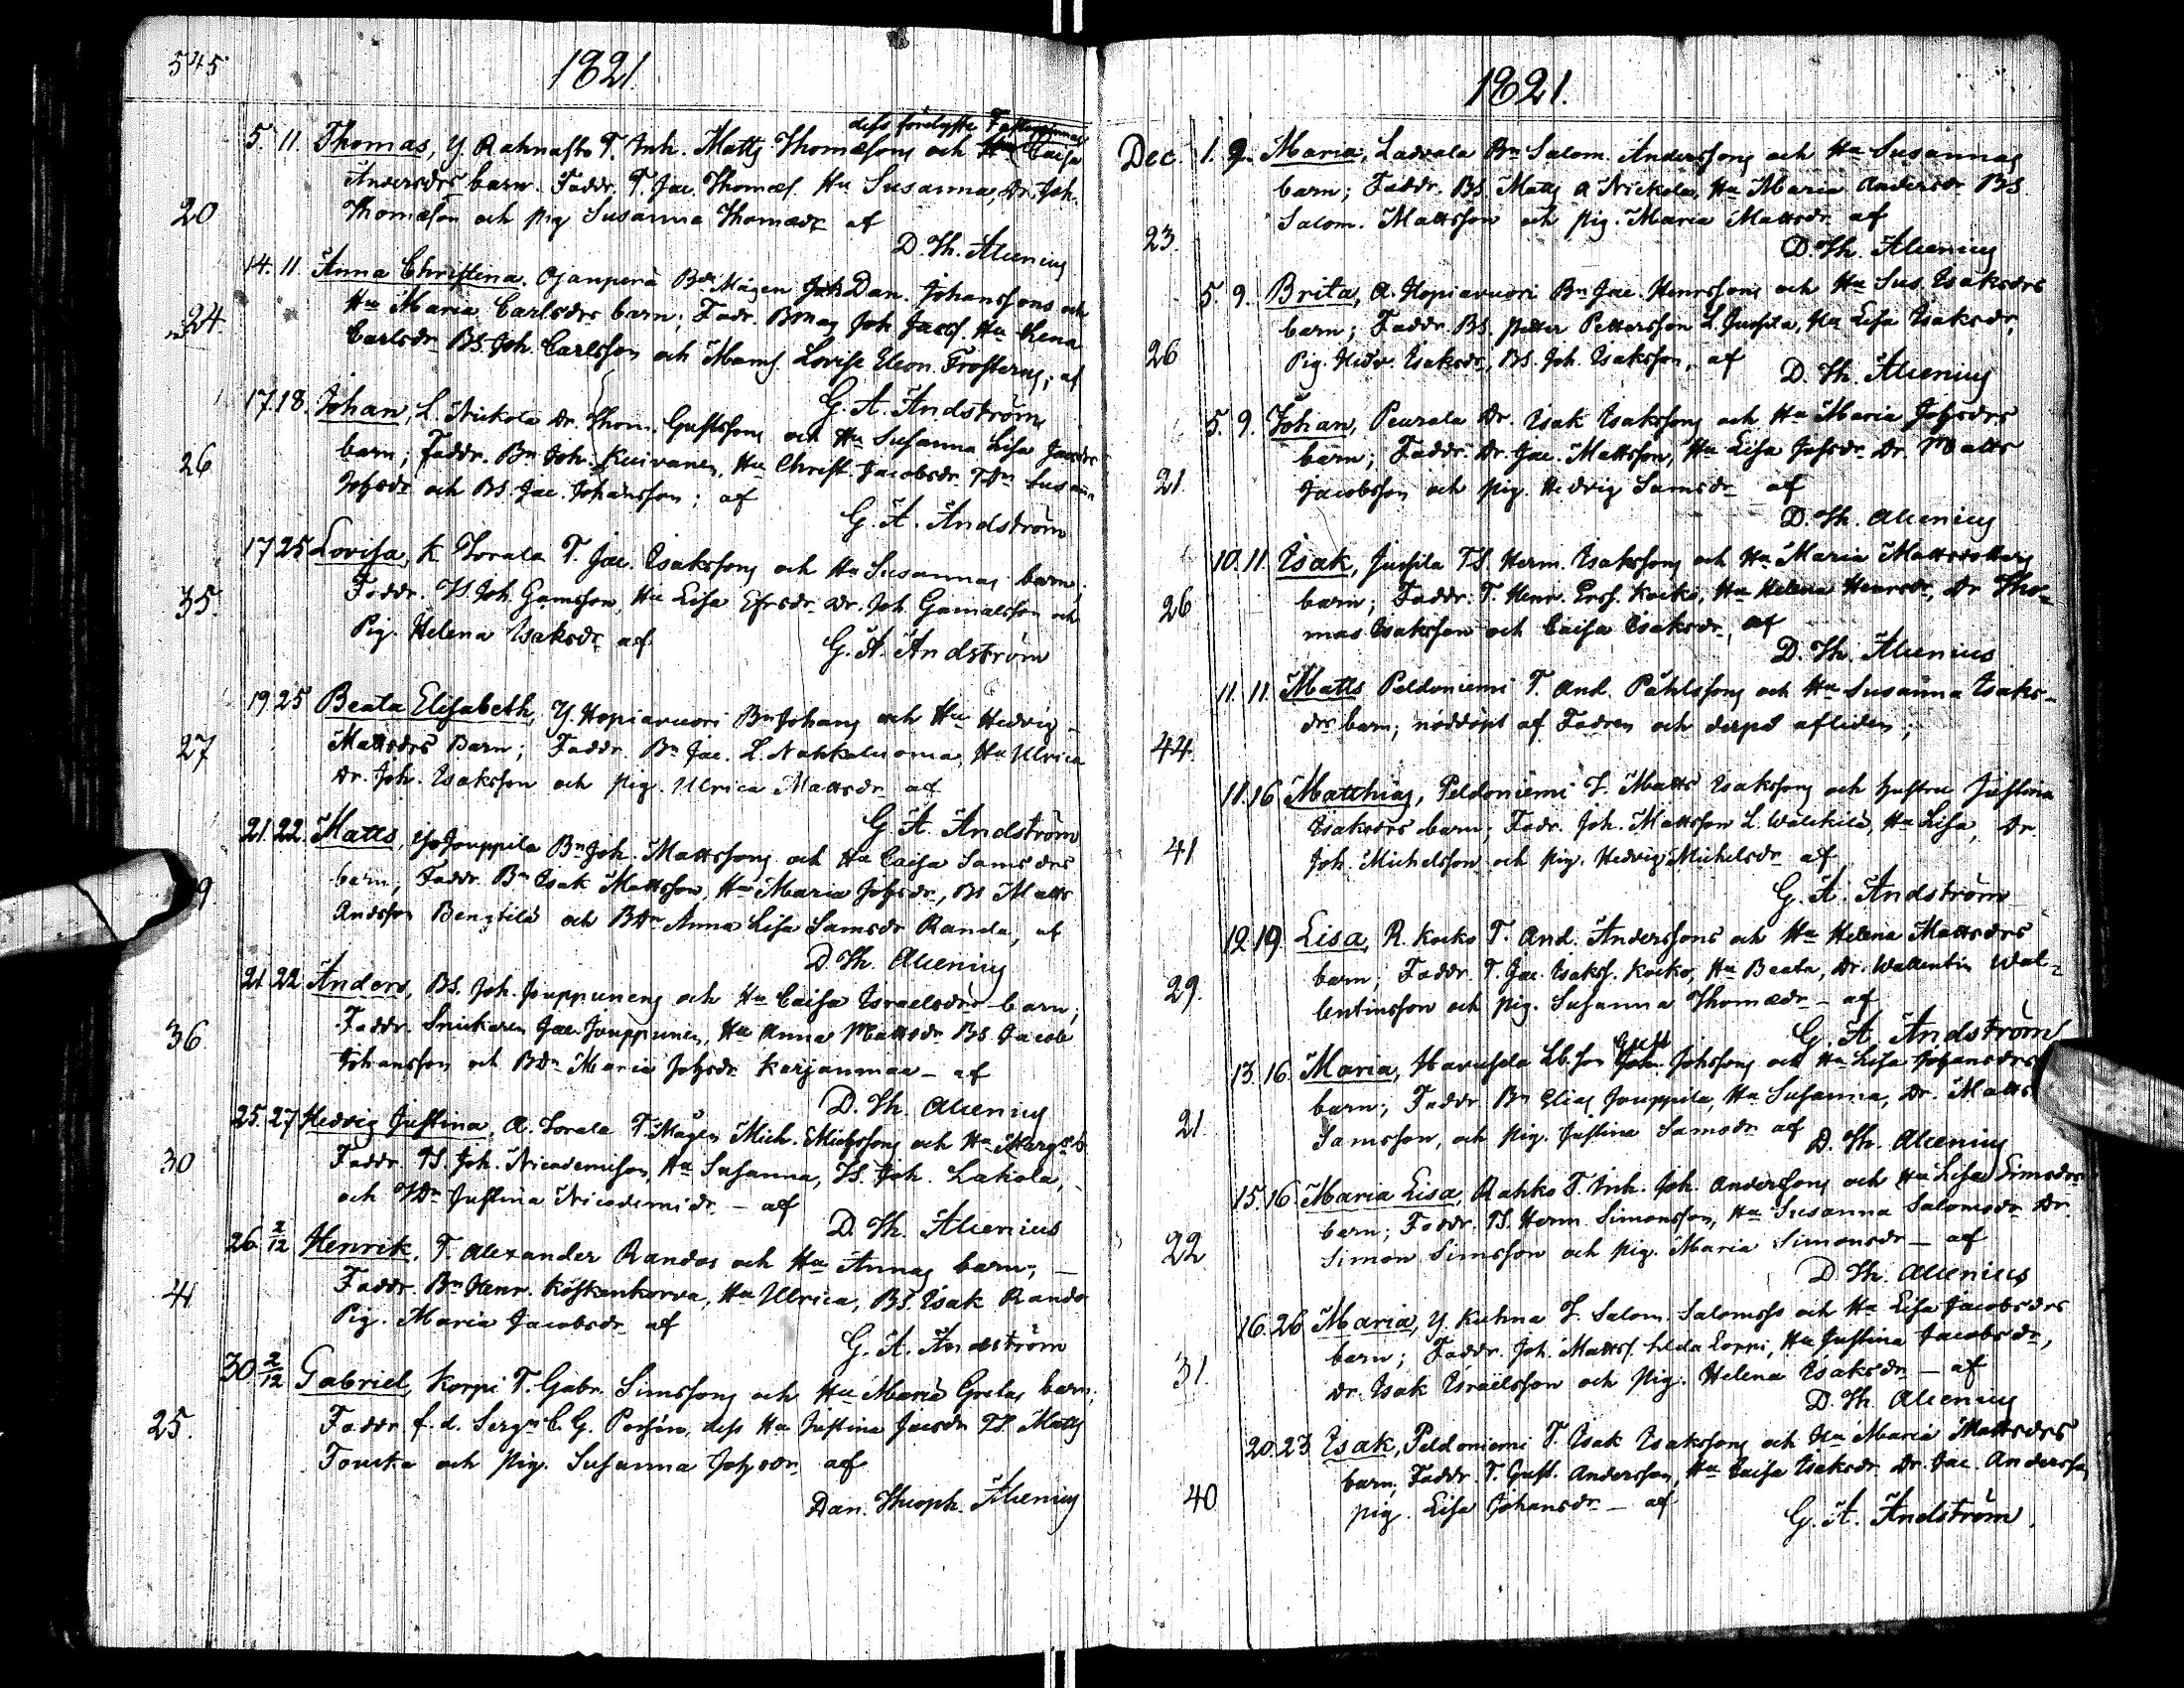 545
1821.
5. 11. Thomas, Y. Rahnasto T. Inh. Matts Thomæsons och Caisa
Andersdrs barn. Faddr. T. Jac. Thomæs. Hu Susanna, Dr. Joh.
20
Thomæson och pig Susanna Thomædr af
D. Th. Alcenius
14. 11 Anna Christina. Ojanperä Bde Mågen Dan. Johanssons och
Hu Maria Carlsdrs barn; Fadr. Bmåg Joh. Jacs. Hu Lena
24
Carlsdr BS. Joh. Carlsson och Mams. Lovise Eleon. Frosterus; af
G. A. Andström
17. 18. Johan, L. Nickola Dr. Thom. Gustfsons och Hu Susanna Lisa Jacsdrs
barn; Faddr. Bn Joh. Kuivanen, Hu Christ. Jacobsdr. TDr Susanna
26
Johsdr och BS. Jac. Johansson; af
G. A. Andström
17 25 Lovisa, K Lorala T. Jac. Isakssons och Hu Susannas barn;
Faddr. TS. Joh. Gamsson, Hu Lisa Efrsdr. Dr. Joh. Gamalsson och
35.
Pig. Helena Isaksdr af
G. A. Andström
19 25 Beata Elisabeth, Y. Hopiavuori Bn Johans och Hu Hedvig
Mattsdrs Barn; Faddr. Bn Jac. L. Nahkaluoma, Hu Ulrica
27
Dr. Joh. Isaksson och pig. Ulrica Mattsdr af
G. A. Andström
21. 22. Matts, Jouppila Bn Joh. Mattssons och Hu Caisa Samsdrs
barn; Faddr. Bn Isak Mattsson, Hu Maria Johsdr, BS Matts
9.
Andsson Bengtilä och BDr Anna Lisa Samsdr Randa, af
D. Th. Alcenius
21. 22 Anders, BS. Joh. Jouppunens och Hu Caisa Israelsdrs barn;
Faddr. Snickaren Jac. Jouppunen, Hu Anna Mattsdr BS. Jacob
36
Johansson och BDr Maria Johsdr Karjanmaa – af
D. Th. Alcenius
25. 27 Hedvig Justina, A. Lorala T. Mågen Mich. Michssons och Hu Margs b
30
Faddr. TS. Joh. Nicodemisson, Hu Susanna, TS. Joh. Lahola,
och TDr Justina Nicodemidr – af
D. Th. Alcenius
26 2/12 Henrik, T. Alexander Randas och Hu Annas barn; –
Faddr. Bn Henr. Koskenkorva, Hu Ulrica, BS. Isak Rando
41
Pig. Maria Jacobsdr af
G. A. Andström
30 2/12 Gabriel, Korpi T. Gabr. Simssons och Hu Maria Gretas barn;
25.
Faddr f. d. Sergn C. G. Porsén, dess Hu Justina Jacsdr TS. Matts
Fouska och pig. Susanna Johsdr, af
Dan. Theoph. Alcenius
1821.
Dec. 1. 2. Maria, Ladvala Bn Salom. Anderssons och Hu Susannas
barn; Faddr. BS. Matts A Nickola, Hu Maria Andersdr BS
Salom. Mattsson och pig. Maria Mattsdr af
23.
D. Th. Alcenius
5. 9. Brita, A. Hopiavuori Bn Jac. Henrssons och Hu Sus. Isaksdrs
barn; Faddr. BS. Petter Pettersson L Jussila, Hu Lisa Isaksdr,
26
Pig. Hedv. Isaksdr, BS. Joh. Isaksson, af
D. Th. Alcenius
5. 9. Johan, Peurala Dr. Isak Isakssons och Hu Maria Johsdrs
barn; Faddr. Dr. Jac. Mattsson, Hu Lisa Johsdr Dr. Matts
21.
Jacobsson och pig. Hedvig Samsdr af
D. Th. Alcenius
10. 11. Isak, Jussila TS. Herm. Isakssons och Hu Maria Mattsdotters
barn; Faddr. T. Henr. Erss. Kocko, Hu Helena Henrsdr, Dr Tho-
26
mas Isaksson och Caisa Isaksdr, af
D. Th. Alcenius
11. 11. Matts Peldoniemi T. And. Påhlssons och Hu Susanna Isaks-
drs barn; nöddöpt af Fadren och derpå afliden;
44.
11. 16 Matthias, Peldoniemi T. Matts Isakssons och hustru Justina
Isaksdrs barn; Fadr. Joh. Mattsson L. Wälikilä, Hu Lisa, Dr.
41
Joh. Michelsson och pig. Hedvig Michelsdr af
G. A. Andström
12. 19. Lisa, R. Kocko T. And. Anderssons och Hu Helena Mattsdrs
barn; Faddr. T. Jac. Isakss. Kocko, Hu Beata, Dr. Wallentin Wal-
29.
lentinsson och pig. Susanna Thomædr – af
G. A. Andström
Gust
13. 16. Maria, Harjusela Johssons och Hu Lisa Johansdrs
barn; Faddr. Bn Elias Jouppila, Hu Susanna, Dr. Matts
21.
Samsson, och pig. Justina Samsdr af D. Th. Alcenius
15. 16 Maria Lisa, Rahko T. Inh. Joh. Anderssons och Hu Lisa Simsdrs
barn; Faddr. TS. Herm. Simonsson, Hu Susanna Salomsdr Dr.
22
Simon Simsson och pig. Maria Simonsdr – af
D. Th. Alcenius
16. 26 Maria, Y. Kuhna T. Salom. Salomss och Hu Lisa Jacobsdrs
barn; Faddr. Joh. Mattss. Loppi, Hu Justina Jacobsdr,
31.
Dr. Isak Israelsson och pig. Helena Isaksdr – af
D. Th. Alcenius
20. 23 Isak, Peldoniemi T. Isak Isakssons och Hu Maria Mattsdrs
barn; Faddr. T. Gust. Andersson, Hu Caisa Isaksdr Dr. Jac. Andersson
40
pig. Lisa Johansdr – af
G. A. Andström.